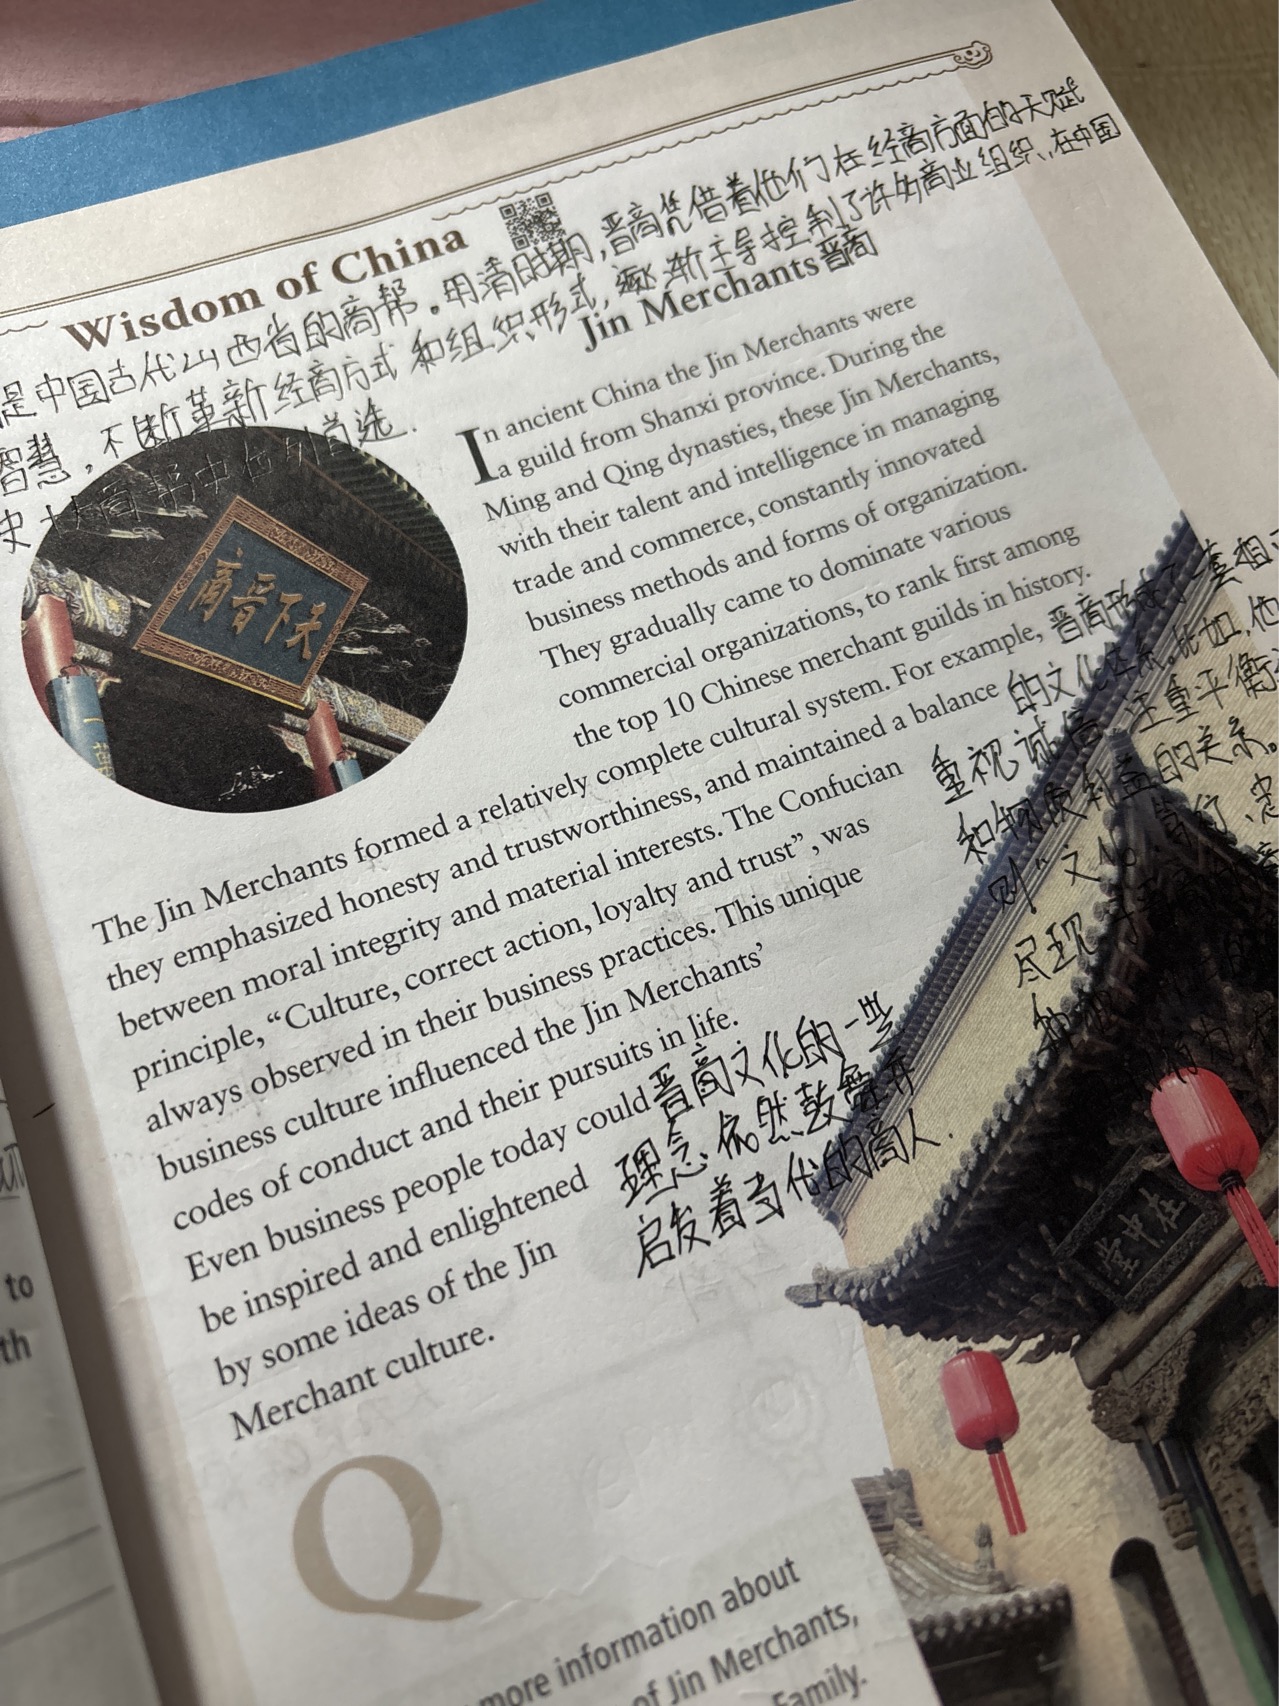 Wisdom of China
是中国古代山西省的商帮。明清时期,晋商凭借着他们在经商方面的天赋
智慧,不断革新经商方式和组织形式,逐渐主导控制了许多商业组织,在中国
史十大商帮中位列首选.
Jin Merchants晋商
In ancient China the Jin Merchants were
a guild from Shanxi province. During the
Ming and Qing dynasties, these Jin Merchants,
with their talent and intelligence in managing
trade and commerce, constantly innovated
business methods and forms of organization.
They gradually came to dominate various
commercial organizations, to rank first among
the top 10 Chinese merchant guilds in history.
商晋下天
The Jin Merchants formed a relatively complete cultural system. For example,
they emphasized honesty and trustworthiness, and maintained a balance
between moral integrity and material interests. The Confucian
principle, “Culture, correct action, loyalty and trust”, was
always observed in their business practices. This unique
business culture influenced the Jin Merchants’
codes of conduct and their pursuits in life.
Even business people today could
be inspired and enlightened
by some ideas of the Jin
Merchant culture.
晋商形成了一套相
的文化体系。比如,他
重视诚信,注重平衡
和物质利益的关系。
则“文化、
尽现
晋商文化的一些
理念依然鼓舞并
启发着当代的商人.
堂中在
to
th
Q
more information about
of Jin Merchants,
Family.